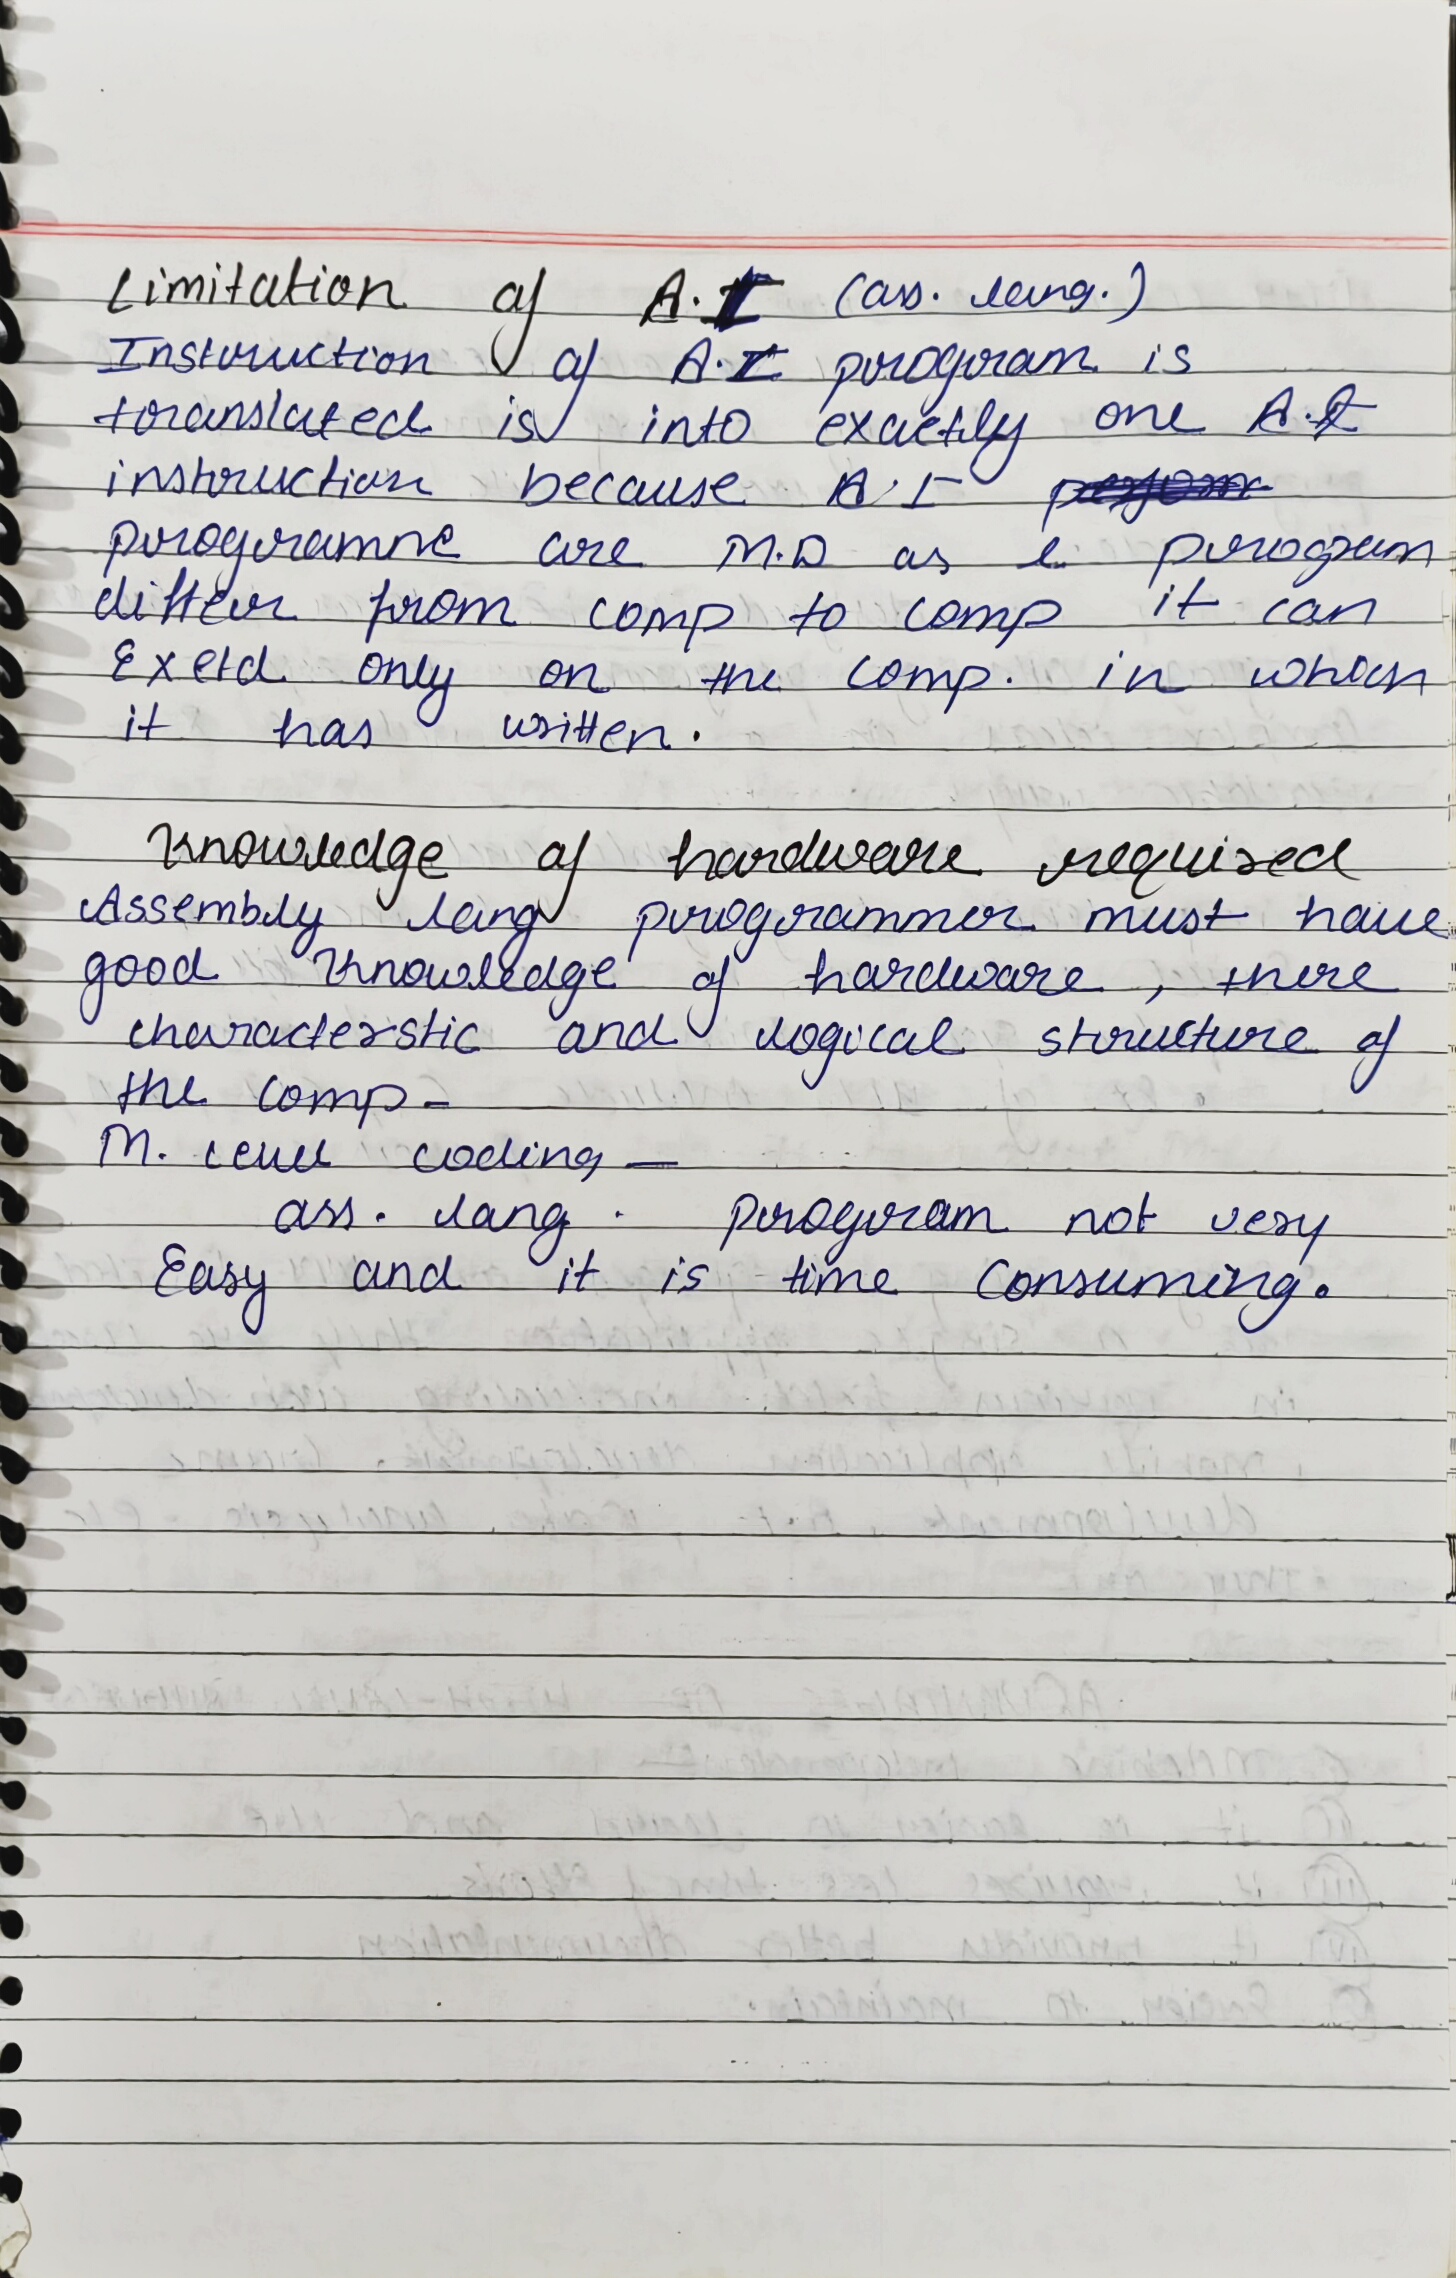 Limitation of A.I (ass. lang.)
Instruction of A.I program is
translated is into exactly one A.I
instruction because A.I
programne are M.D as l. program
differ from comp to comp it can
Exetd only on the comp. in which
it has written.
Knowledge of hardware required
Assembly lang programmer must have
good Knowledge of hardware, there
characterstic and logical structure of
the comp-
M. level coding -
ass. lang. program not very
Easy and it is time Consuming.